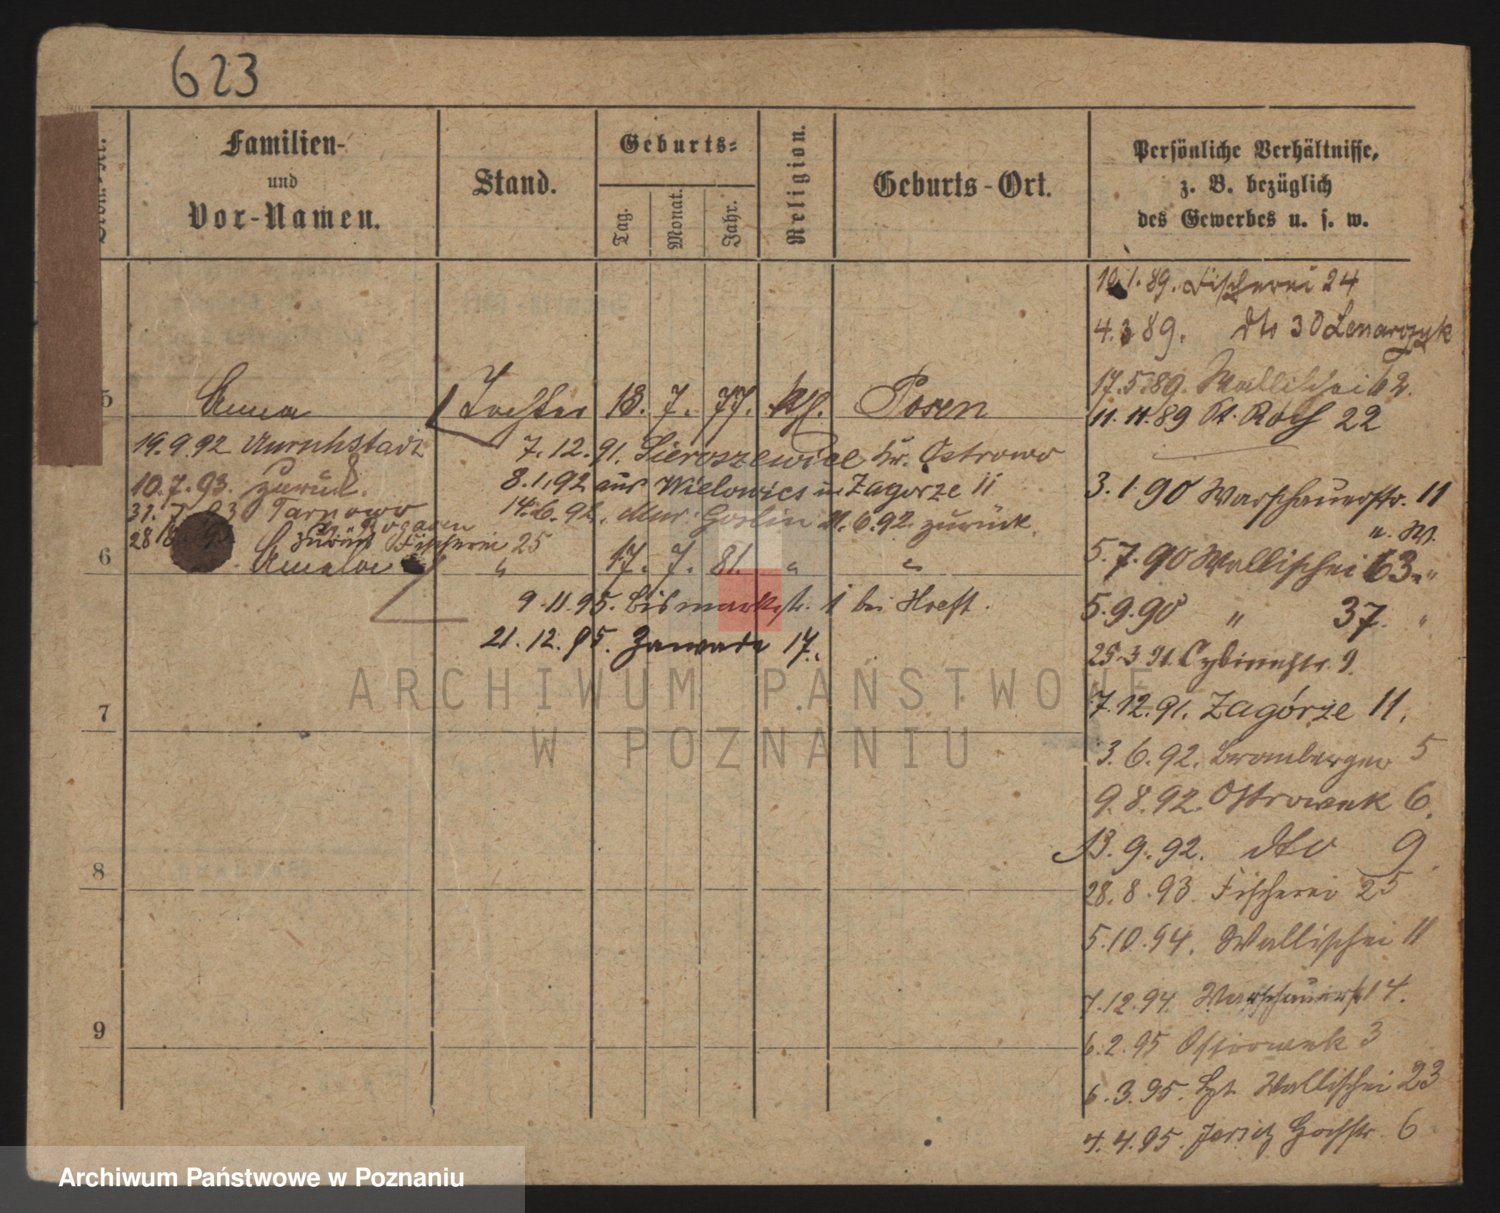 623
Familien-
und
Vor-Namen.
Stand.
Geburts-
Tag.
Monat.
Jahr.
Religion.
Geburts-Ort.
Persönliche Verhältnisse,
z. B. bezüglich
des Gewerbes u. s. w.
10.1.89. Fischerei 24
4.3 89. dto 30 Lenarczyk
17.5.89. Wallischei 62.
5 Anna Tochter 13. 7. 77. kth. Posen
11.11.89 St. Roch 22
19.9.92 Unruhstadt 7.12.91. Sieroszewice Kr. Ostrowo
10.7.93. zurück. 8.1.92 aus Wielowies u. Zagorze 11
3.1 90 Warschauerstr. 11
31.7.93 Tarnowo 14.6.92. Mur. Goslin 21.6.92. zurück.
Rogasen
zurück Fischerei 25
6 Amalie " 17. 7. 81. " "
5.7.90 Wallischei 63 "
9.11.95. Bismarckstr. 1 bei Hoeft.
5.9.90 " 37. "
21.12.95. Zawade 17.
25.3.91. Cybinastr. 9.
7
7.12.91. Zagórze 11.
3.6.92. Bromberger 5
9.8.92. Ostrowek 6.
13.9.92. dto 9.
8
28.8.93. Fischerei 25
5.10.94. Wallischei 11
7.12.94. Warschauerst 4.
9
6.2.95 Ostrowek 3
6.3.95. Wallischei 23
4.4.95. Jersitz Hochstr. 6
ARCHIWUM PAŃSTWOWE
W POZNANIU
Archiwum Państwowe w Poznaniu